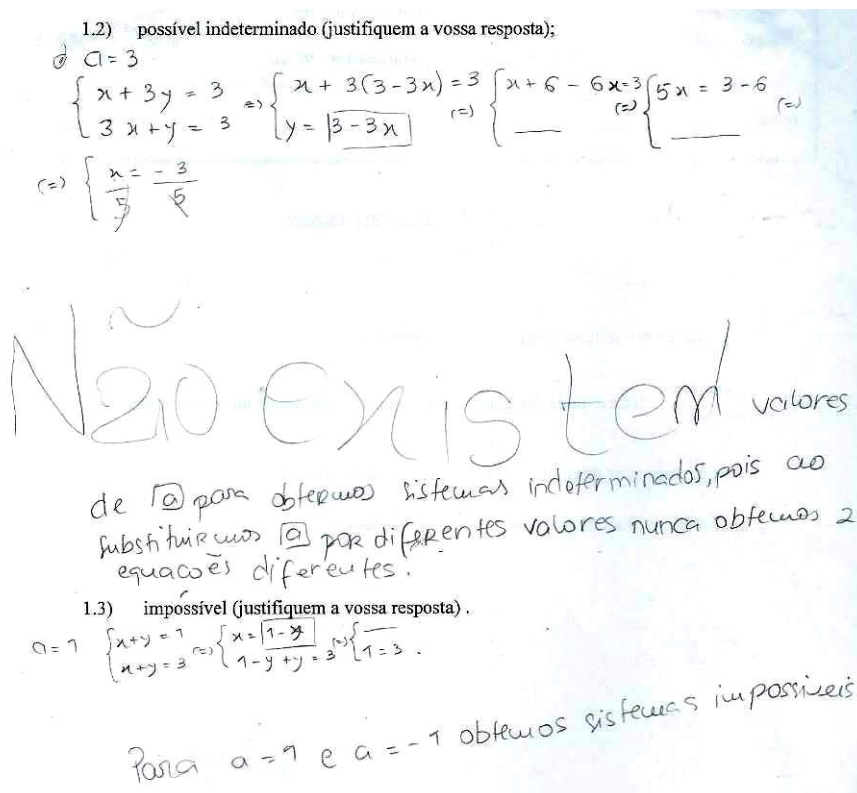 1.2) possível indeterminado (justifiquem a vossa resposta);
a = 3
{ x + 3y = 3 (=) { x + 3(3 - 3x) = 3 (=) { x + 6 - 6x = 3 (=) { 5x = 3 - 6 (=)
{ 3x + y = 3 { y = |3 - 3x| { ___ { ___
(=) { x/5 = - 3/5
Não existem valores
de a para obtermos sistemas indeterminados, pois ao
substituirmos a por diferentes valores nunca obtemos 2
equacões diferentes.
1.3) impossível (justifiquem a vossa resposta) .
a = 1 { x + y = 1 (=) { x = 1 - y (=) { ___
{ x + y = 3 { 1 - y + y = 3 { 1 = 3 .
Para a = 1 e a = -1 obtemos sistemas impossiveis